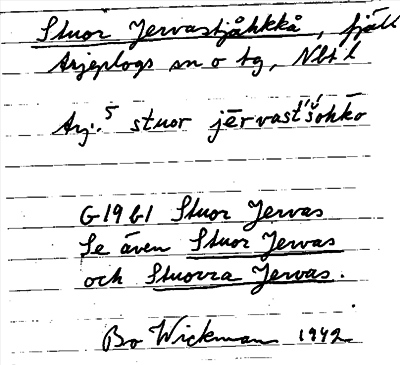 Stuor Jervastjåhkkå, fjäll
Arjeplogs sn o tg, Nbt l
Arj. 5 stuor jērvast́šohko
G 19 61 Stuor Jervas
Se även Stuor Jervas
och Stuorra Jervas.
Bo Wickman 1942.